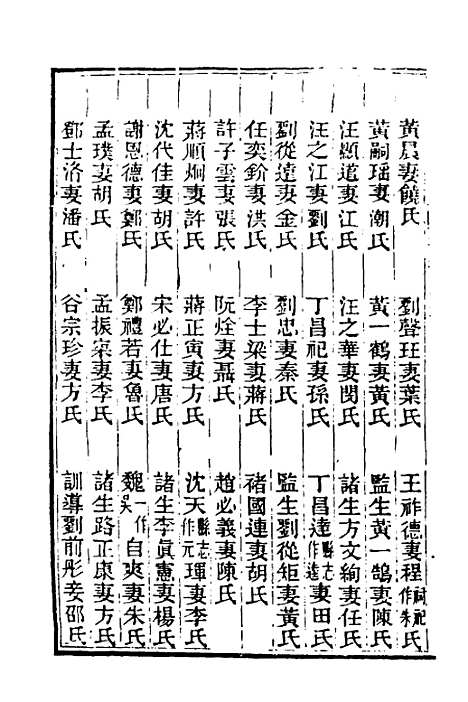 黃晟妻饒氏　劉聲玨妻葉氏　王祚德妻程祠祀作朱氏
黃嗣瑶妻潮氏　黃一鶴妻黃氏　監生黃一鵠妻陳氏
汪顯道妻江氏　汪之華妻閔氏　諸生方文絢妻任氏
汪之江妻劉氏　丁昌祀妻孫氏　丁昌達縣志作逵妻田氏
劉從遠妻金氏　劉忠妻秦氏　監生劉從矩妻黃氏
任奕鈖妻洪氏　李士梁妻蔣氏　禇國連妻胡氏
許子雲妻張氏　阮烇妻聶氏　趙必義妻陳氏
蔣順炯妻許氏　蔣正寅妻方氏　沈天縣志作元琿妻李氏
沈代佳妻胡氏　宋必仕妻唐氏　諸生李眞憲妻楊氏
謝恩德妻鄭氏　鄭禮若妻魯氏　魏一作吳自爽妻朱氏
孟璞妻胡氏　孟振宲妻李氏　諸生路正康妻方氏
鄧士洛妻潘氏　谷宗珍妻方氏　訓導劉前彤妾邵氏